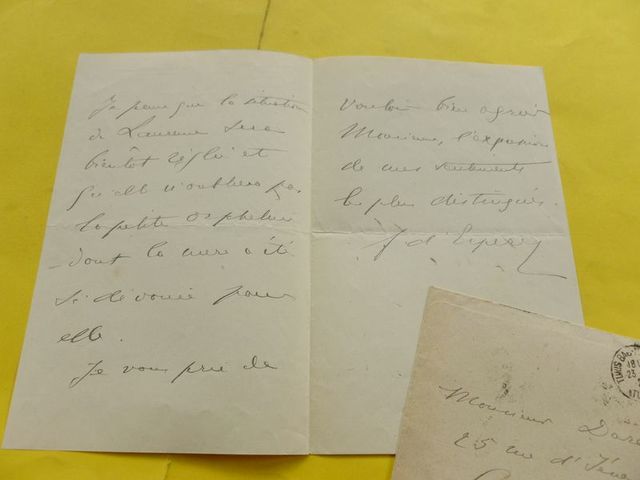 Je pense que la situation
de Laurence sera
bientôt réglée et
qu'elle n'oubliera pas
la petite orpheline
dont la mère a été
si dévouée pour
elle.
Je vous prie de
vouloir bien agréer
Monsieur, l'expression
de mes sentiments
les plus distingués.
J d'
Monsieur
25 rue d'